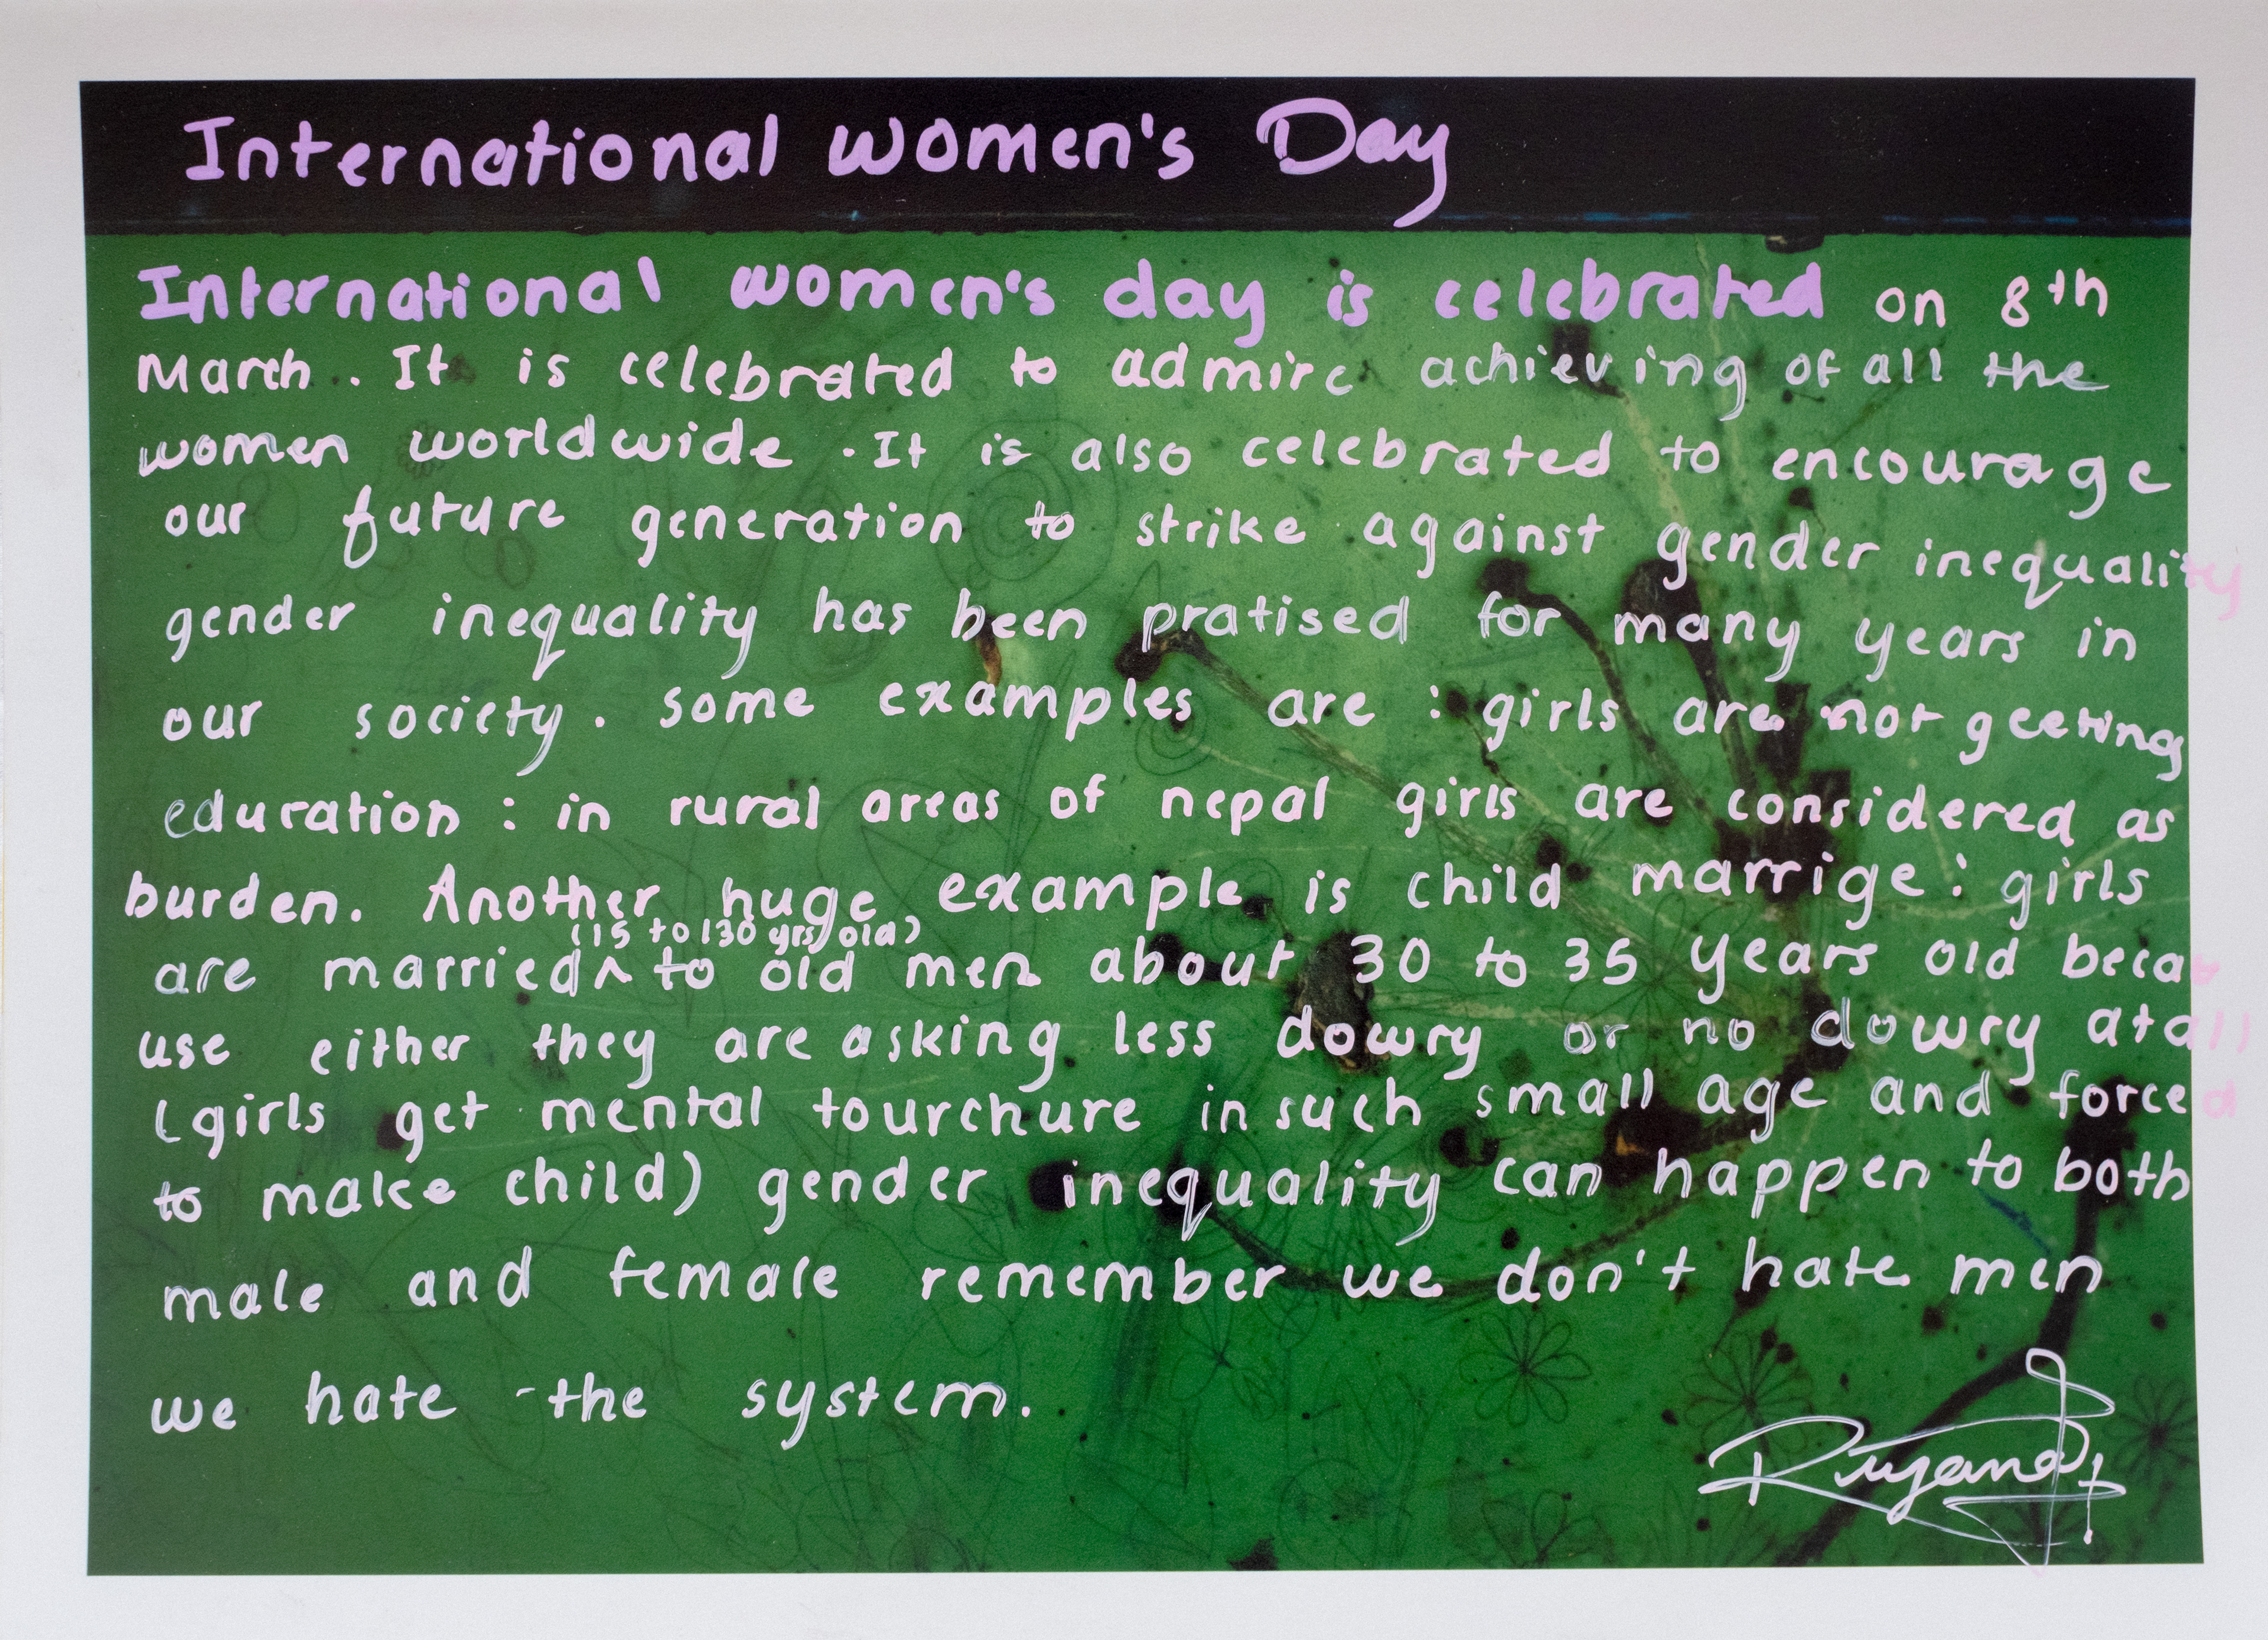 International women's Day
International women's day is celebrated on 8th
March. It is celebrated to admire achieving of all the
women worldwide. It is also celebrated to encourage
our future generation to strike against gender inequality
gender inequality has been pratised for many years in
our society. some examples are : girls are not geeting
education : in rural areas of nepal girls are considered as
burden. Another huge example is child marrige : girls
(15 to 130 yrs old)
are married ^ to old men about 30 to 35 years old beca
use either they are asking less dowry or no dowry atall
(girls get mental tourchure in such small age and forced
to make child) gender inequality can happen to both
male and female remember we don't hate men
we hate the system.